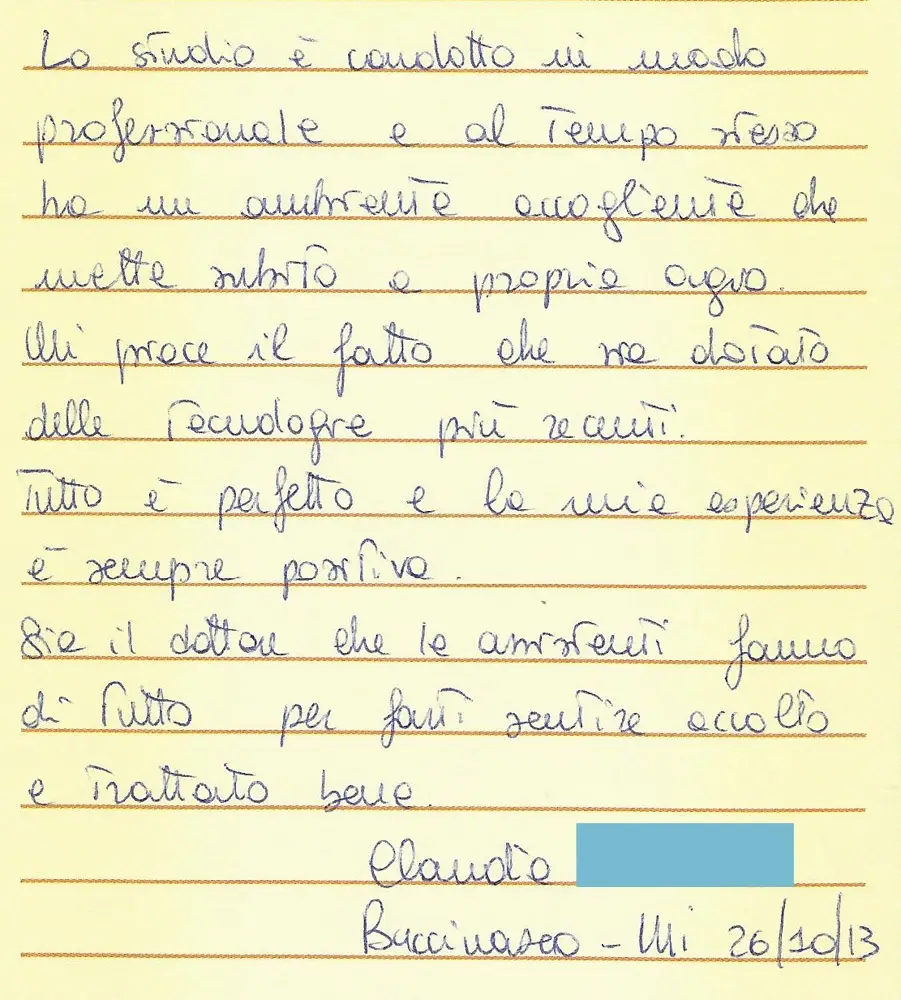 Lo studio è condotto in modo
professionale e al tempo stesso
ha un ambiente accogliente che
mette subito a proprio agio.
Mi piace il fatto che sia dotato
delle tecnologie più recenti.
Tutto è perfetto e la mia esperienza
è sempre positiva.
Sia il dottore che le assistenti fanno
di tutto per farti sentire accolto
e trattato bene.
Claudio
Buccinasco - Mi 26/10/13